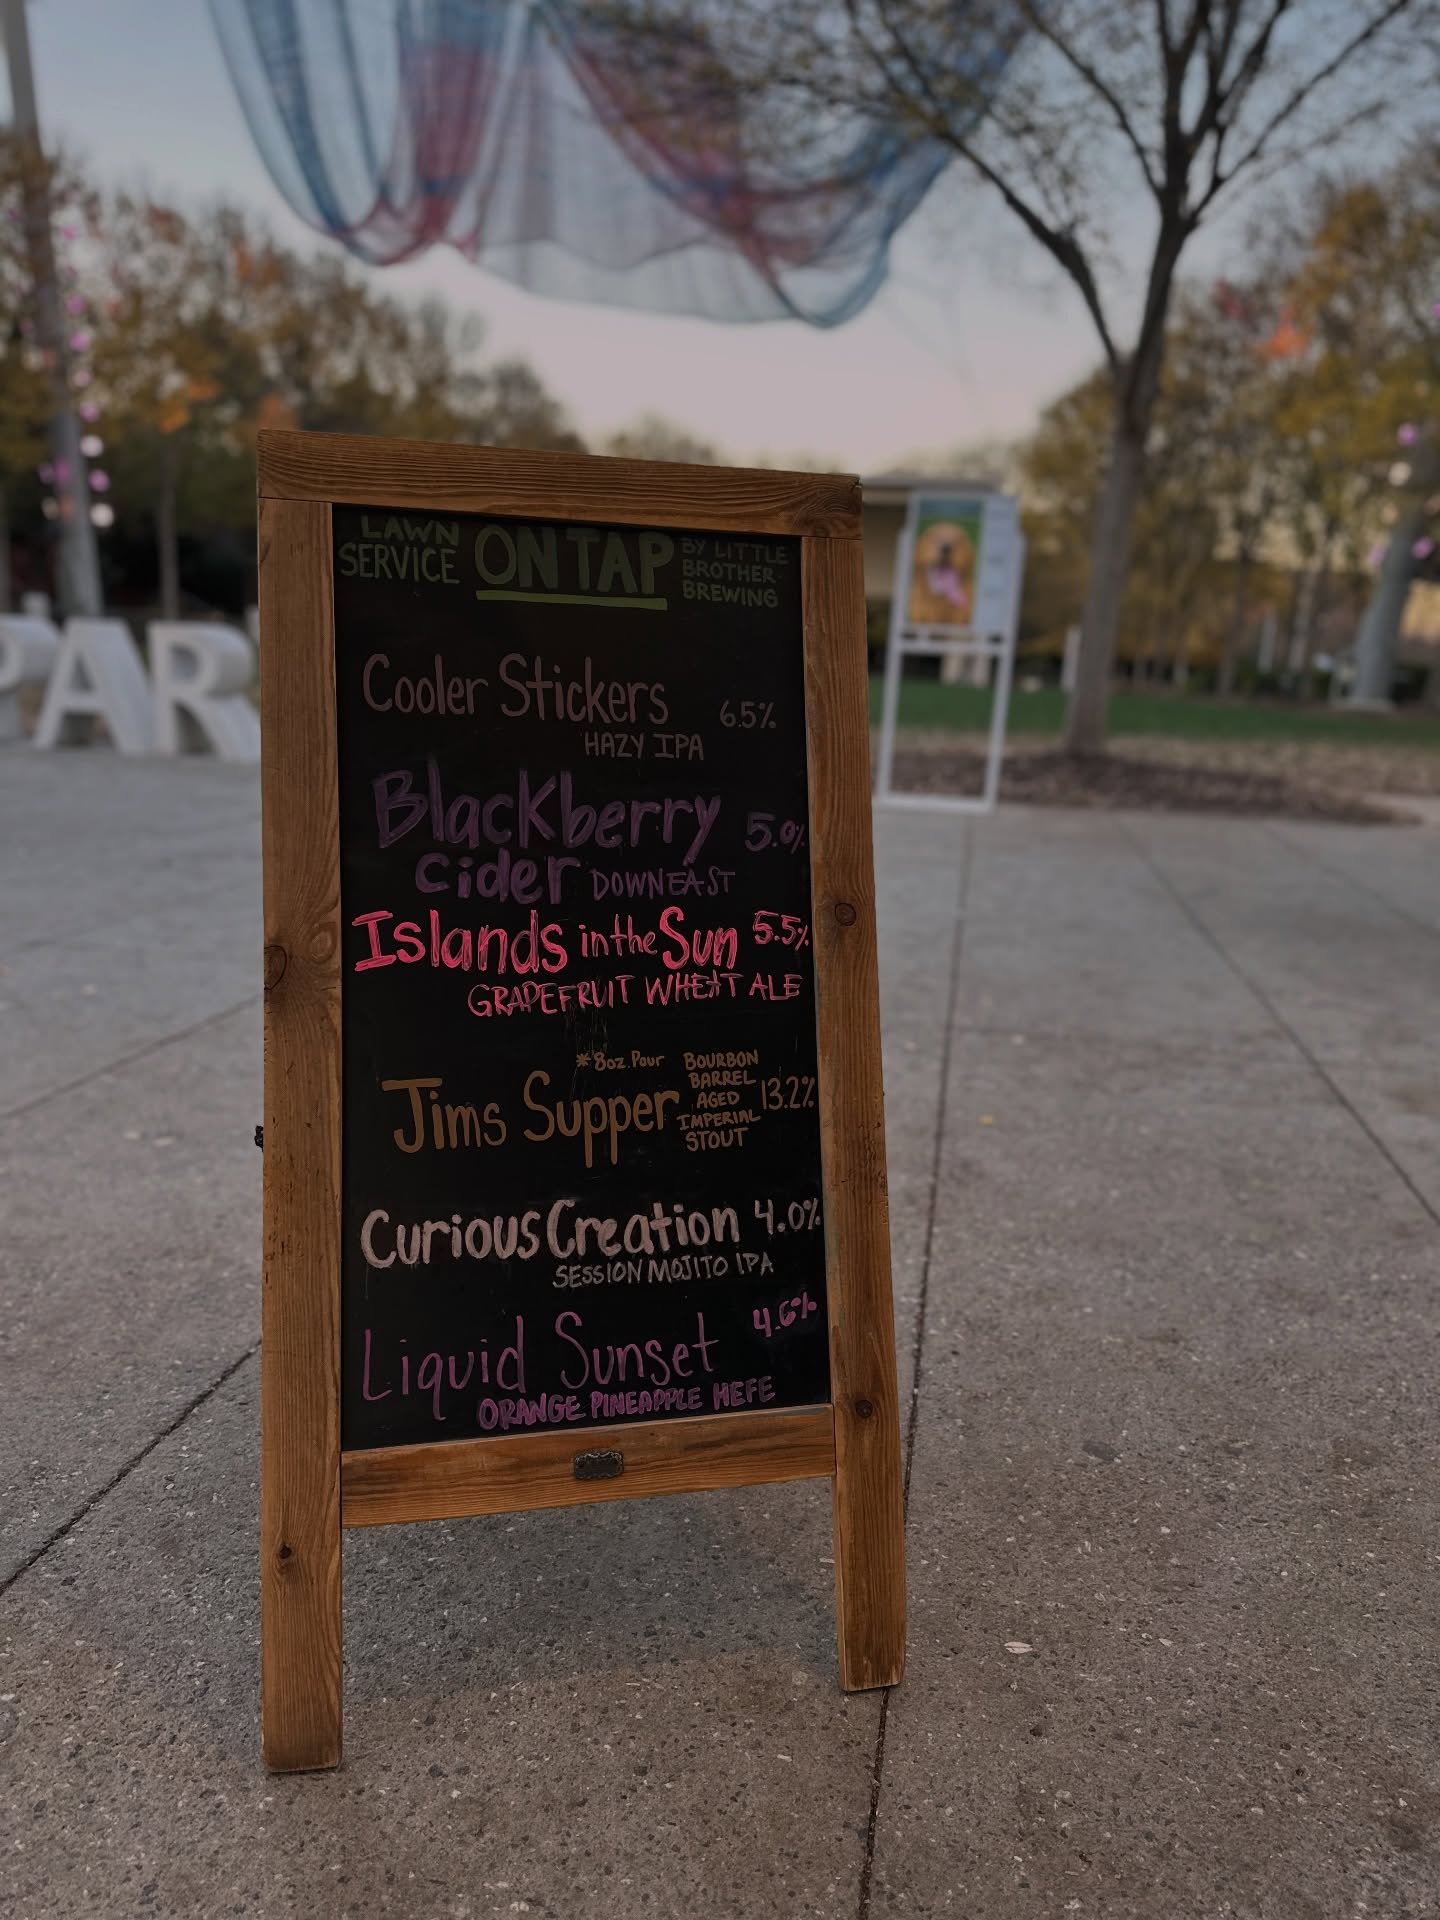 LAWN SERVICE ON TAP BY LITTLE BROTHER BREWING
Cooler Stickers 6.5%
HAZY IPA
Blackberry 5.0%
Cider DOWNEAST
Islands in the Sun 5.5%
GRAPEFRUIT WHEAT ALE
*8oz. Pour
Jims Supper BOURBON BARREL AGED IMPERIAL STOUT 13.2%
Curious Creation 4.0%
SESSION MOJITO IPA
Liquid Sunset 4.6%
ORANGE PINEAPPLE HEFE
PAR